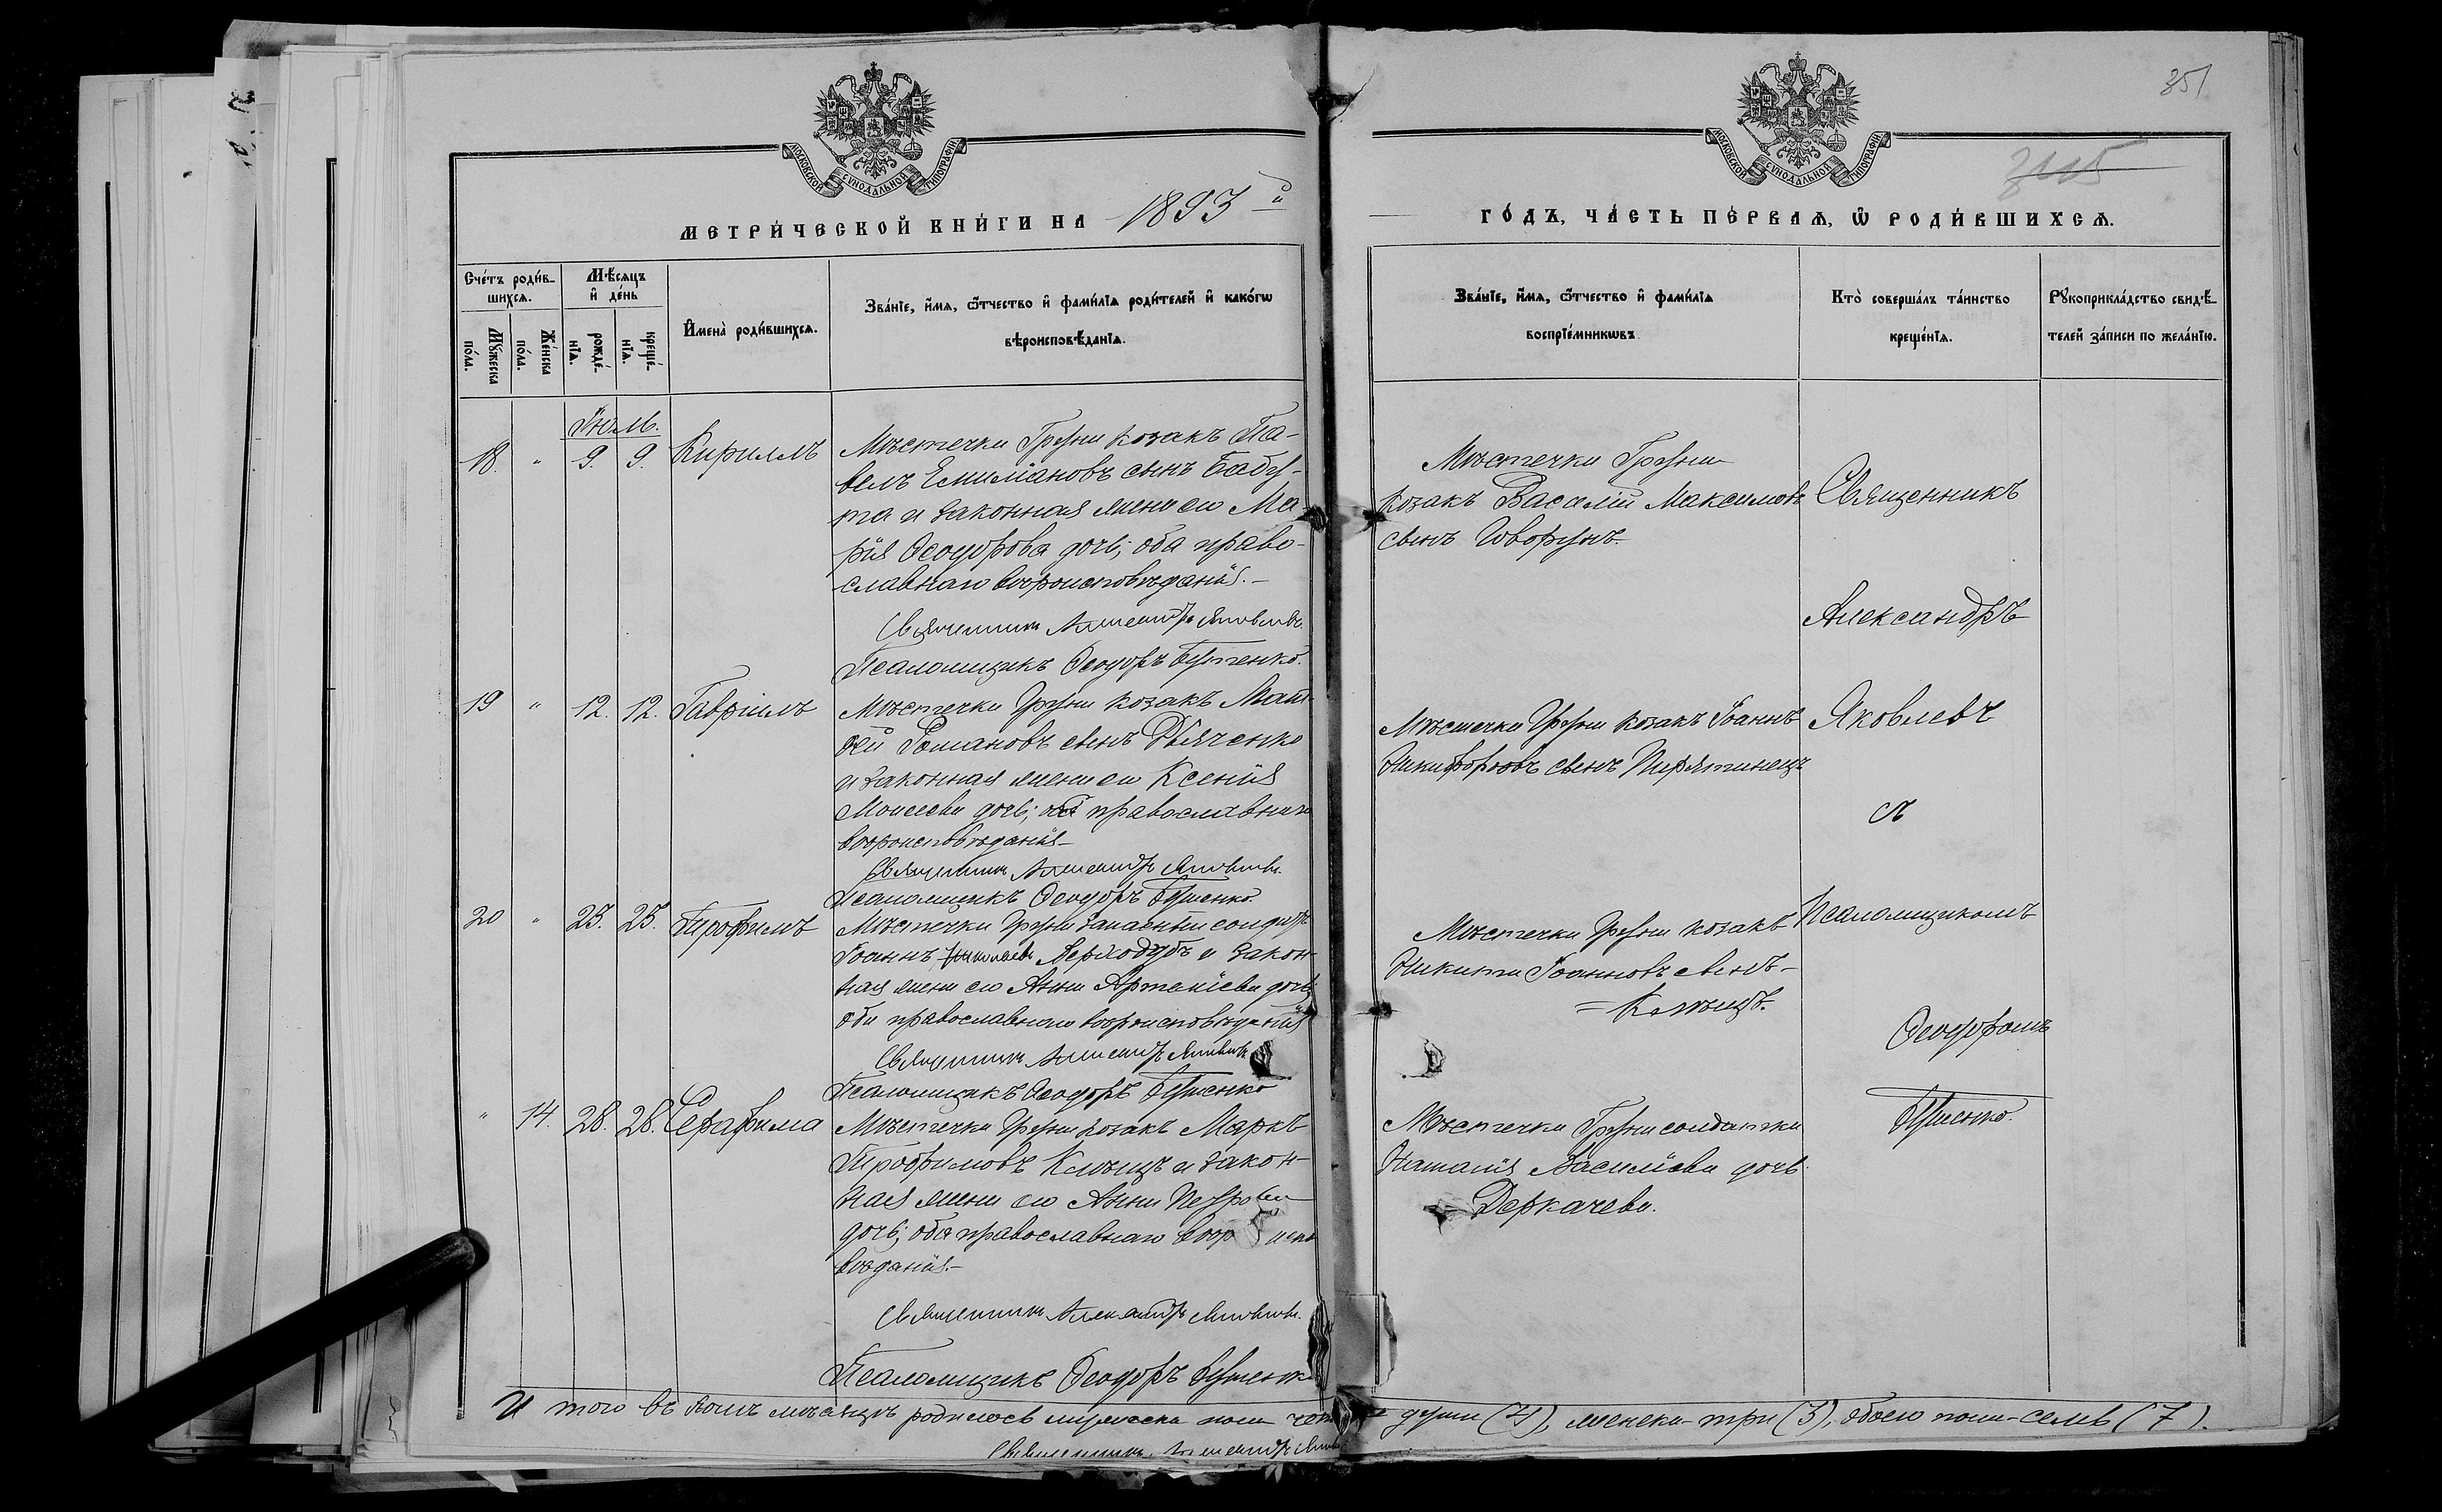 351
3115
МОСКОВСКОЙ СѴНОДАЛЬНОЙ ТИПОГРАФІИ
МОСКОВСКОЙ СѴНОДАЛЬНОЙ ТИПОГРАФІИ
МЕТРИ́ЧЕСКОЙ КНИ́ГИ НА 1893 й
ГО́ДЪ, ЧА́СТЬ ПЕ́РВАѦ, Ѿ РОДИ́ВШИХСѦ.
Счéтъ роди́в-
шихсѧ.
Мꙋжеска
по́ла.
Же́нска
по́ла.
Мѣ́сѧцъ
и҆ де́нь
рожде́-
нїѧ.
креще́-
нїѧ.
И҆мена̀ роди́вшихсѧ.
Зва́нїе, и҆́мѧ, ѻ҆́тчество и҆ фами́лїѧ роди́телей и҆ како́гѡ
вѣроисповѣ́данїѧ.
Зва́нїе, и҆́мѧ, ѻ҆́тчество и҆ фами́лїѧ
воспрїе́мникѡвъ.
Кто̀ соверша́лъ та́инство
креще́нїѧ.
Рꙋкоприкла́дство свидѣ́-
телей за́писи по жела́нїю.
Іюль.
18. " 9. 9. Кириллъ
Мѣстечка Груни козакъ Па-
велъ Емиліановъ сынъ Бабу-
та и законная жена его Ма-
рія Ѳеодорова дочь; оба право-
славнаго вѣроисповѣданія.-
Священникъ Александръ Яковлевъ.
Псаломщикъ Ѳеодоръ Бутенко.
Мѣстечка Груни
козакъ Василій Максимовъ
сынъ Говорунъ.
Священникъ
Александръ
Яковлевъ
съ
Псаломщикомъ
Ѳеодоромъ
Бутенко.
19 " 12. 12. Гавріилъ
Мѣстечка Груни козакъ Мат-
ѳей Романовъ сынъ Дьяченко
и законная жена его Ксенія
Моисеева дочь; оба православнаго
вѣроисповѣданія-
Священникъ Александръ Яковлевъ.
Псаломщикъ Ѳеодоръ Бутенко.
Мѣстечка Груни козакъ Іоаннъ
Никифоровъ сынъ Пирятинецъ
20 " 23. 25. Трофимъ
Мѣстечка Груни запасный солдатъ
Іоаннъ Николаевъ Верходубъ и закон-
ная жена его Анна Артеміева дочь;
оба православнаго вѣроисповѣданія
Священникъ Александръ Яковлевъ
Псаломщикъ Ѳеодоръ Бутенко
Мѣстечка Груни козакъ
Никита Іоанновъ сынъ-
" 14. 28. 28. Серафима
Мѣстечка Груни козакъ Маркъ
Трофимовъ Клочцъ и закон-
ная жена его Анна Петрова
дочь; оба православнаго вѣроиспо
вѣданія.-
Священникъ Александръ Яковлевъ.
Псаломщикъ Ѳеодоръ Бутенко
Мѣстечка Груни солдатка
Наталія Василіева дочь
Деркачева.
И того въ Іюлѣ мѣсяцѣ родилось мужеска пола четыре души (4), женска-три (3), обоего пола-семь (7).
Священникъ Александръ Яковлевъ